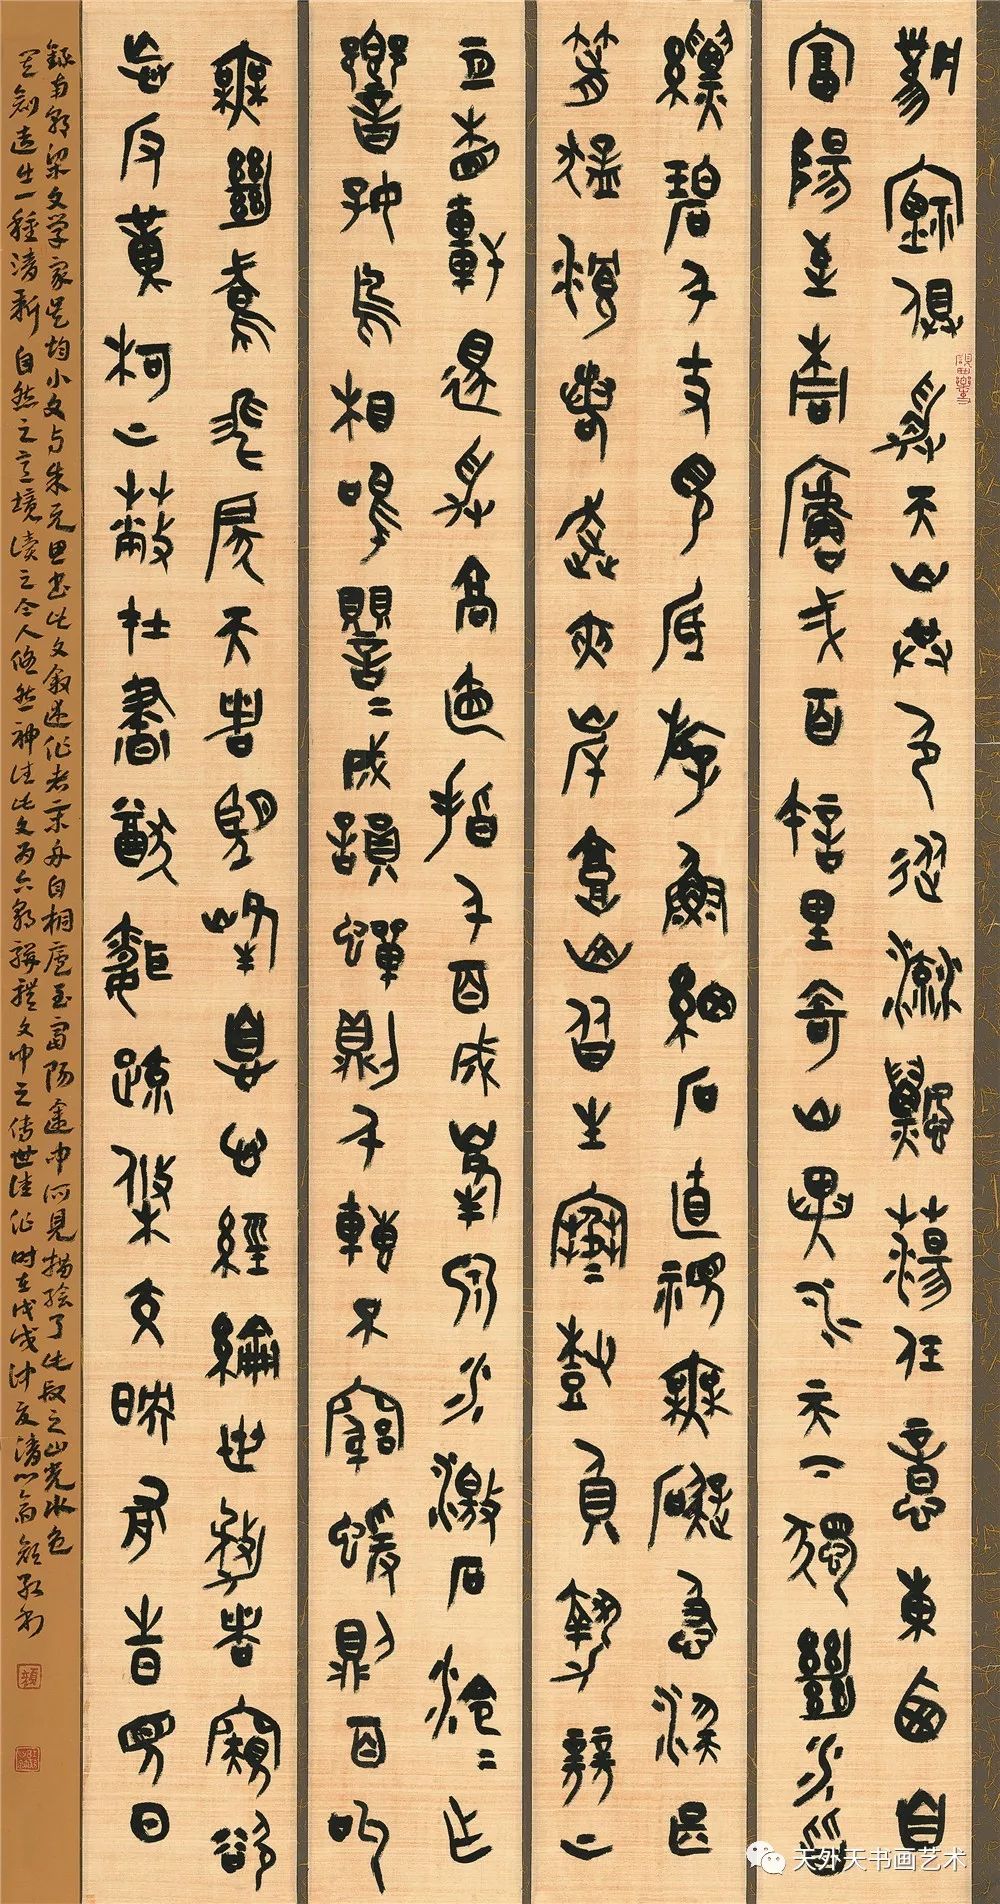 風煙俱淨天山共色從流飄蕩任意東西自
富陽至桐廬弌百許里奇山異水天下獨絕水皆
縹碧千丈見底游魚細石直視無礙急湍甚
箭猛浪若奔夾岸高山皆生寒樹負勢競二
互相軒邈爭高直指千百成峯泉水激石泠二作
響好鳥相鳴嚶二成韻蟬則千轉不窮猨則百叫
無絕鳶飛戾天者望峯息心經綸世務者窺谷
忘反橫柯二蔽在晝猶昏疏條交映有時見日
錄南朝梁文学家吴均小文与朱元思书此文叙述作者乘舟自桐廬至富阳途中所見描绘了此段之山光水色
其創造出一種清新自然之意境读之令人悠然神往此文为六朝駢體文中之传世佳作时在戊戌仲夏清心斋
天外天书画艺术